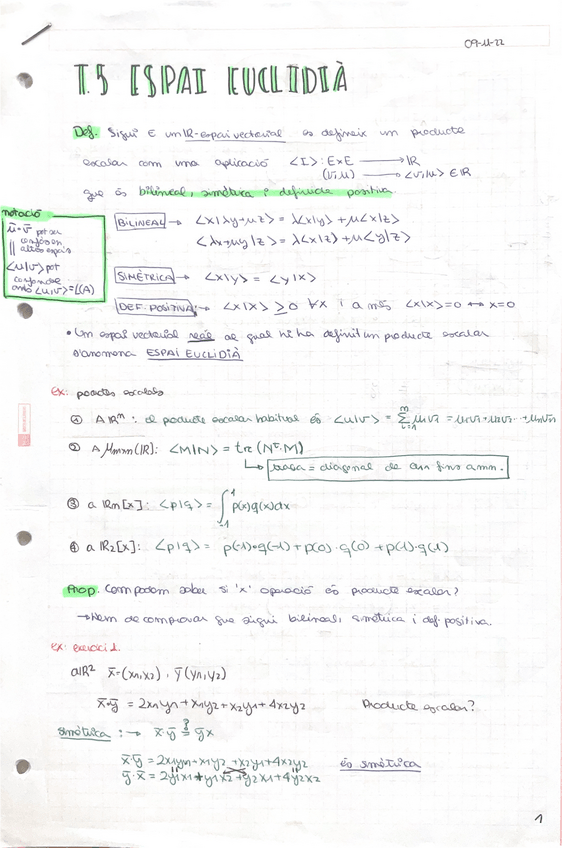 09-11-22
T.5 ESPAI EUCLIDIÀ
Def. Sigui E un IR-espai vectorial es defineix un producte
escalar com una aplicació <I>: E×E → IR
(v̄,ū) → <v,u> ∈ IR
que és bilineal, simètrica i definida positiva
notació
ū·v̄ pot ser
confós en
altres espais
<u|v> pot
confondre
amb <u|v> = L(A)
BILINEAL → <x|λy+μz> = λ<x|y> + μ<x|z>
<λx+μy|z> = λ<x|z> + μ<y|z>
SIMÈTRICA → <x|y> = <y|x>
DEF. POSITIVA → <x|x> ≥ 0 ∀x i a més <x|x>=0 ↔ x=0
• Un espai vectorial real al qual hi ha definit un producte escalar
s'anomena ESPAI EUCLIDIÀ
ex: productes escalars
① A IRⁿ: el producte escalar habitual és <u|v> = Σ uivi = u1v1+u2v2+ ··· +unvn
② A Mmxn(IR): <M|N> = tr(Nᵗ·M)
↳ traça = diagonal de a11 fins amn.
③ a IRn[x]: <p|q> = ∫₋₁¹ p(x)q(x)dx
④ a IR2[x]: <p|q> = p(-1)·q(-1)+p(0)·q(0)+p(1)·q(1)
Prop. Com podem saber si 'x' operació és producte escalar?
→ Hem de comprovar que sigui bilineal, simètrica i def. positiva.
ex: exercici 1.
a IR² x̄=(x1,x2), ȳ(y1,y2)
x̄·ȳ = 2x1y1 + x1y2 + x2y1 + 4x2y2 Producte escalar?
simètrica: → x̄·ȳ ≟ ȳx
x̄·ȳ = 2x1y1+x1y2+x2y1+4x2y2 és simètrica
ȳ·x̄ = 2y1x1+y1x2+y2x1+4y2x2
1